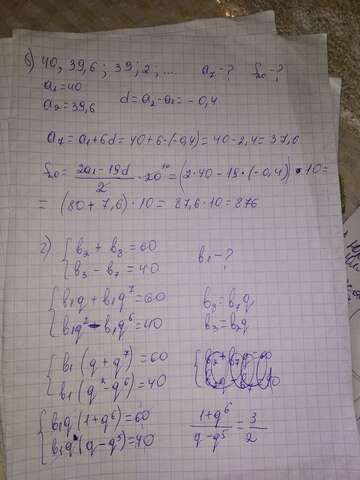 б) 40, 39,6 ; 39,2 ; .... a₇ - ? S₂₀ - ?
a₁ = 40
a₂ = 39,6 d = a₂ - a₁ = - 0,4
a₇ = a₁ + 6d = 40 + 6 · (-0,4) = 40 - 2,4 = 37,6
S₂₀ = (2a₁ - 19d)/2 · 20¹⁰ = (2 · 40 - 19 · (-0,4)) · 10 =
= (80 + 7,6) · 10 = 87,6 · 10 = 876
г) { b₂ + b₈ = 60 b₁ - ?
b₃ - b₇ = 40
{ b₁q + b₁q⁷ = 60 b₈ = b₇q
b₁q² - b₁q⁶ = 40 b₃ = b₂q
{ b₁ (q + q⁷) = 60
b₁ (q² - q⁶) = 40
{ b₁q (1 + q⁶) = 60 (1 + q⁶)/(q - q⁵) = 3/2
b₁q (q - q⁵) = 40